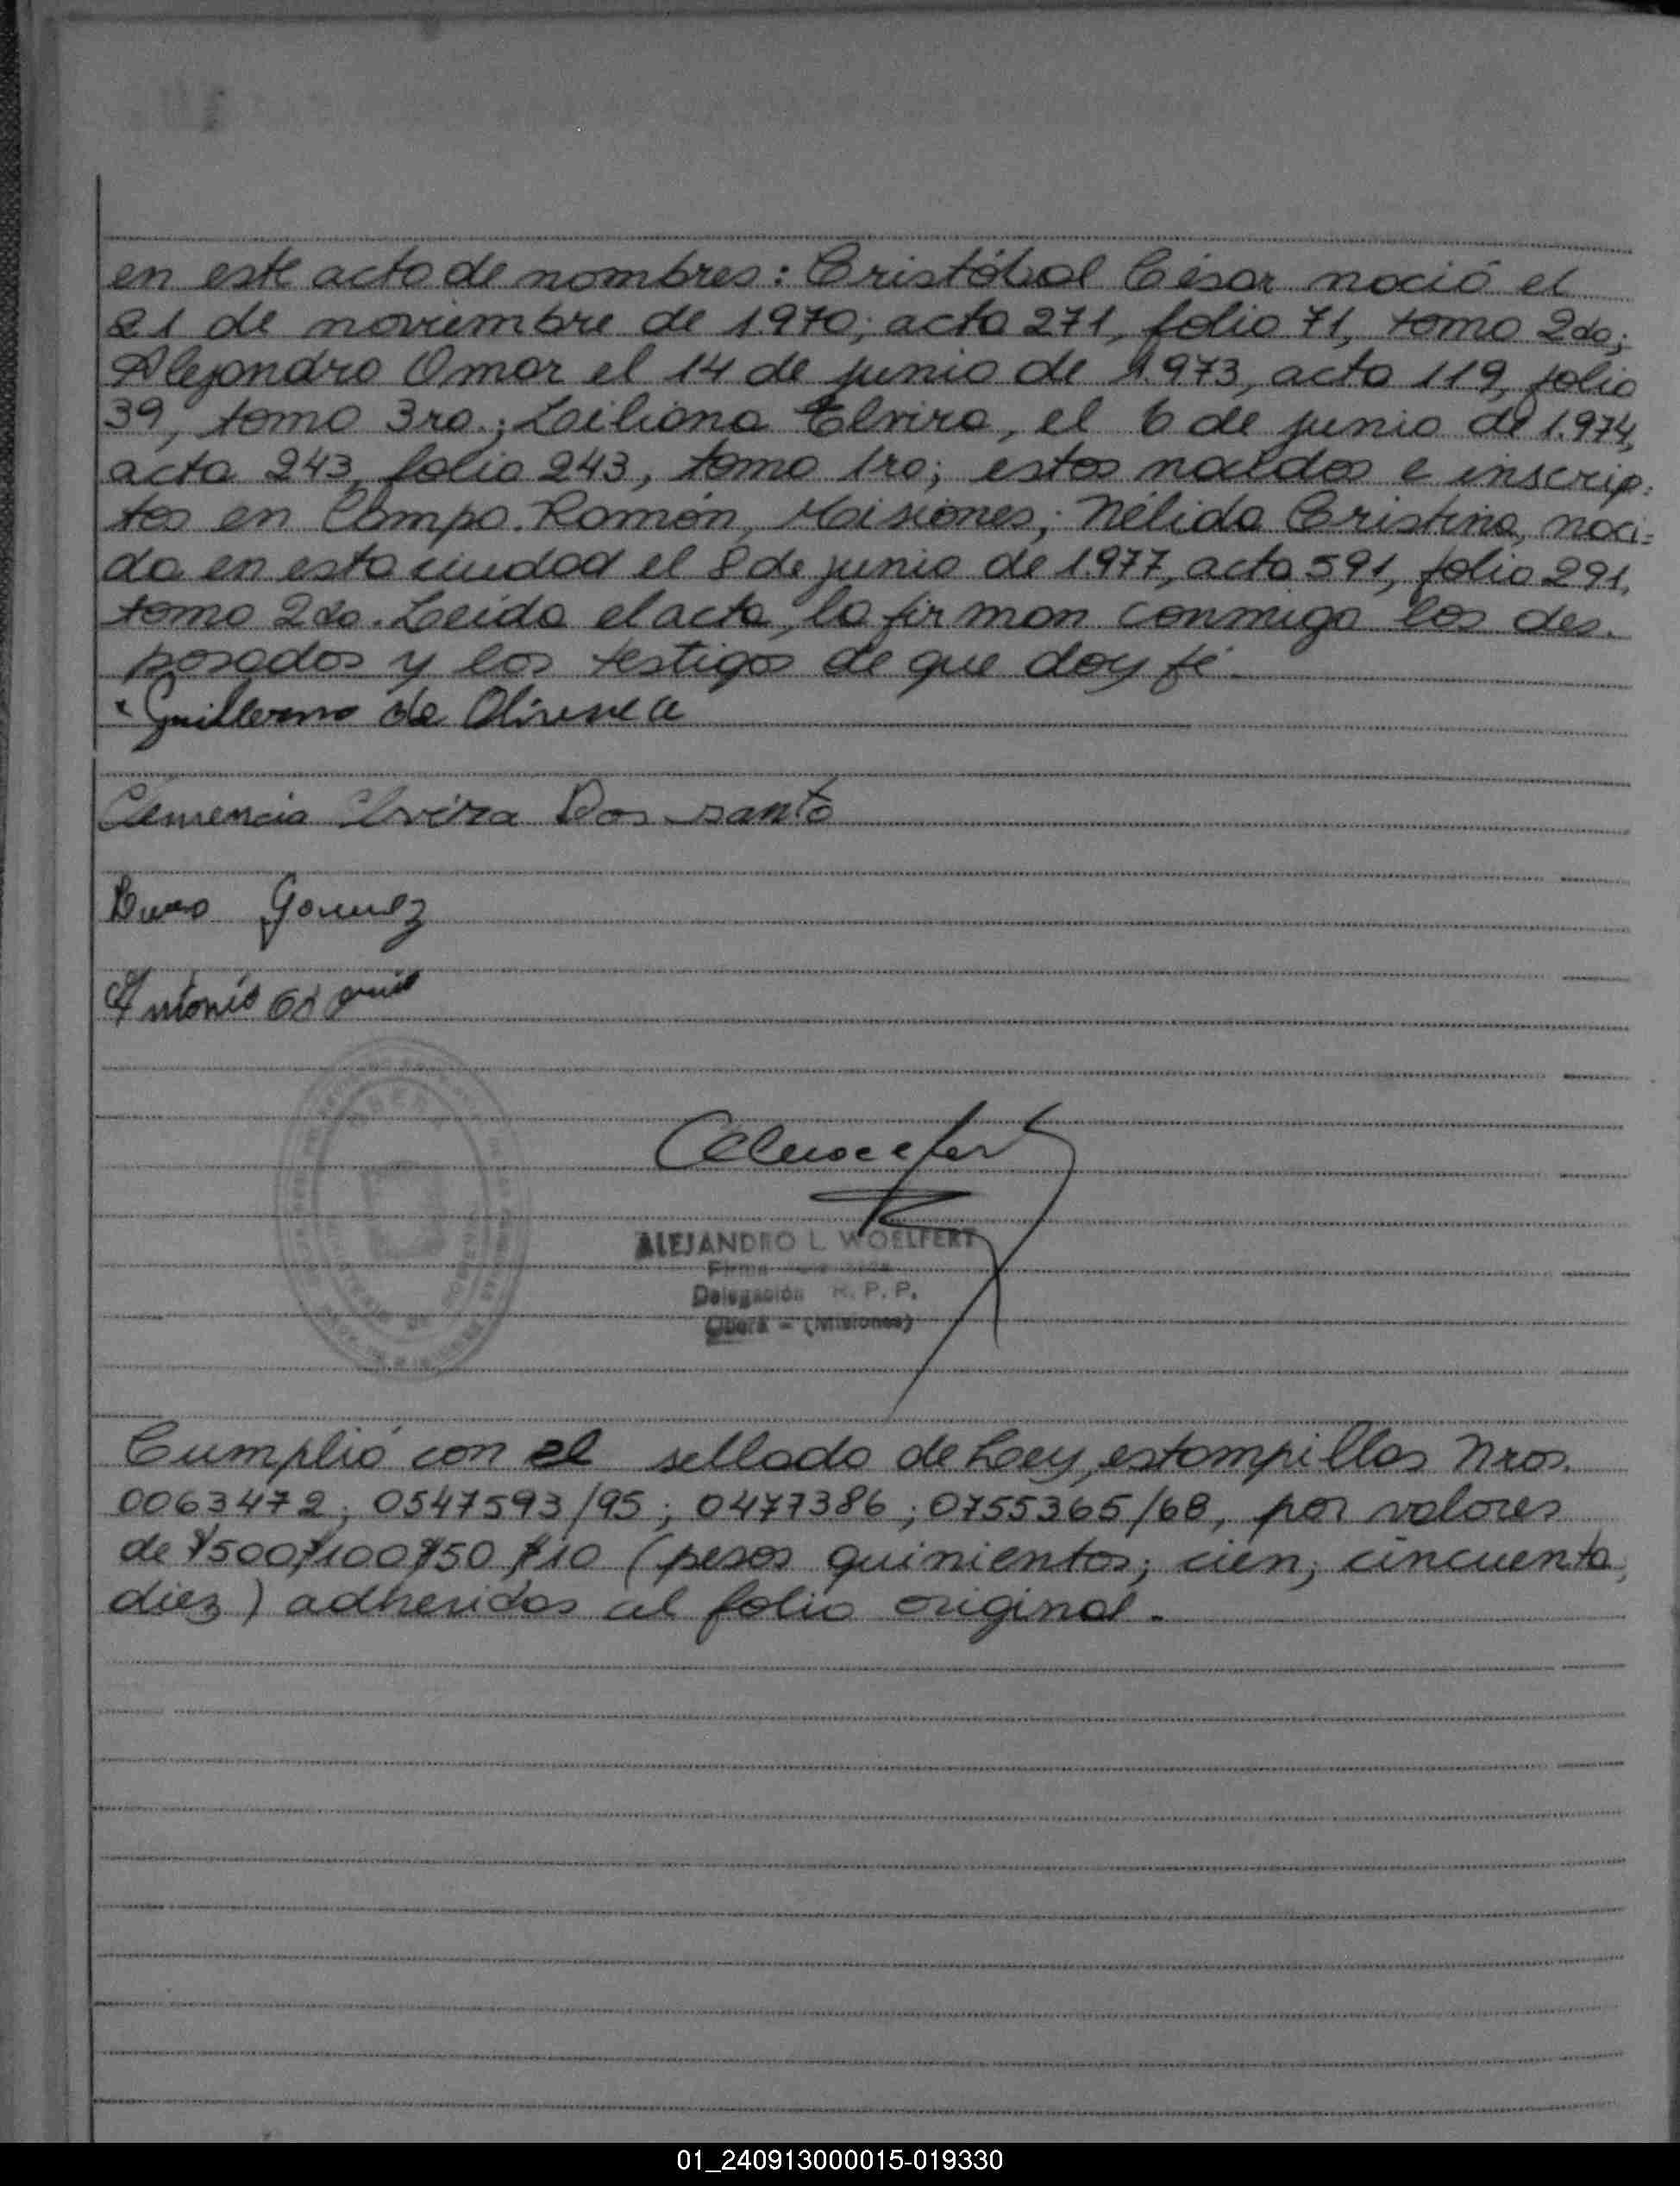 en este acto de nombres: Cristóbal César nació el
21 de noviembre de 1970; acta 271, folio 71, tomo 2do;
Alejandro Omar el 14 de junio de 1.973, acta 119, folio
39, tomo 3ro.; Liliana Elvira, el 6 de junio de 1.974,
acta 243, folio 243, tomo 1ro; estos nacidos e inscrip=
tos en Campo Ramón, Misiones; Nélida Cristina, naci=
da en esta ciudad el 8 de junio de 1.977, acta 591, folio 291,
tomo 2do. Leída el acta, la firman conmigo los des.
posados y los testigos de que doy fé.
Guillermo de Oliveira
Clemencia Elvira Dos santo
Gomez
Antonio
ALEJANDRO L. WOELFERT
Firma
Delegación R. P. P.
Oberá - (Misiones)
Cumplió con el sellado de Ley, estampillas Nros.
0063472; 0547593/95; 0477386; 0755365/68, por valores
de $500,$100,$50,$10 (pesos quinientos; cien; cincuenta,
diez) adheridas al folio original.
01_240913000015-019330